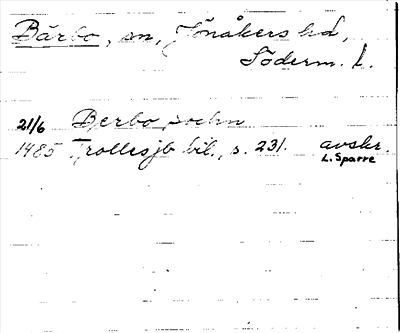 Bärbo, sn, Jönåkers hd,
Söderm. l.
21/6 Berbo sochn
1485 Trollesjb bil., s. 231. avskr.
L. Sparre